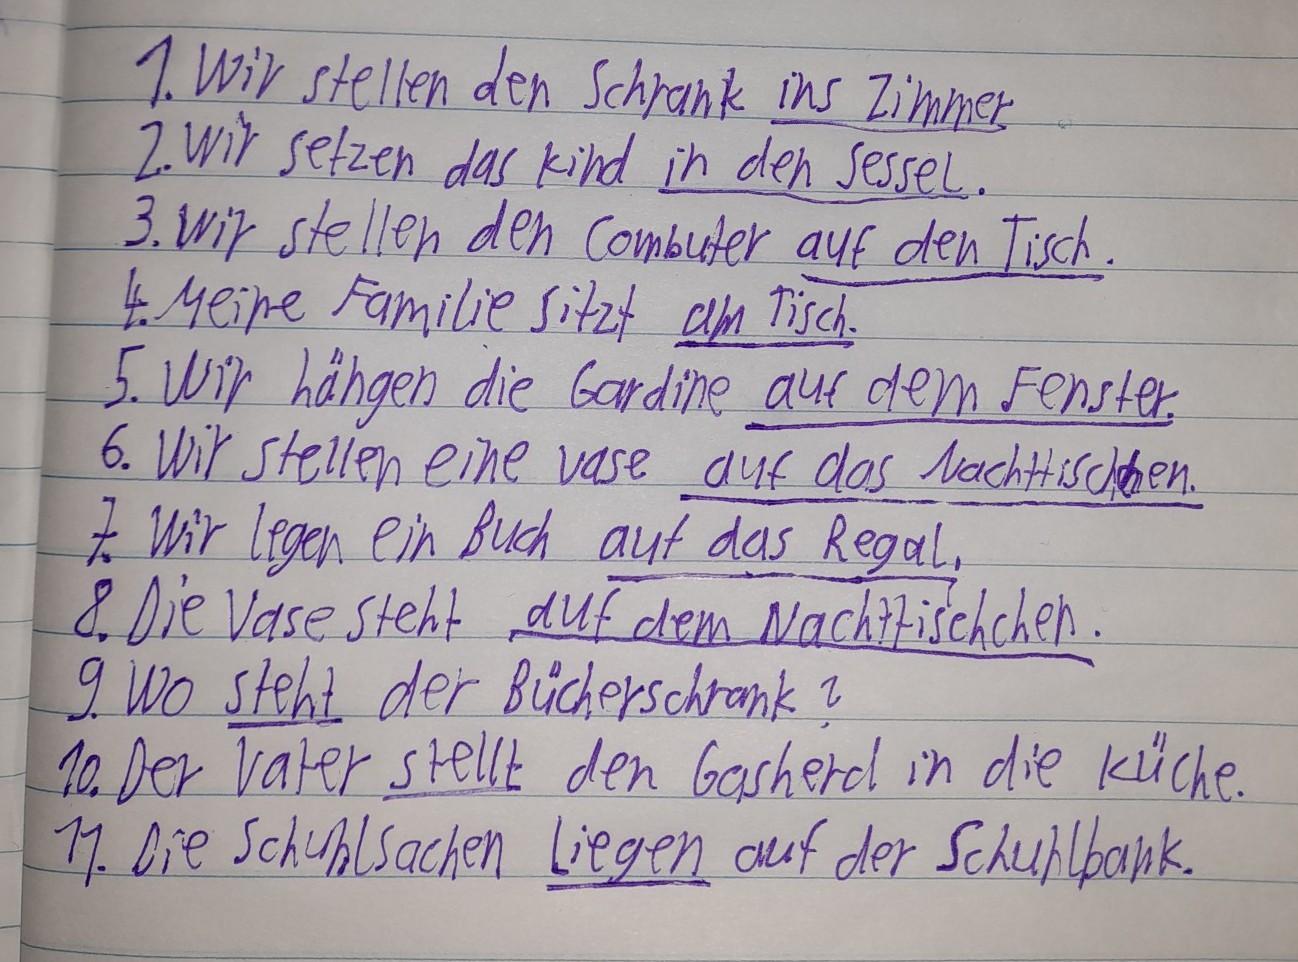 1. Wir stellen den Schrank ins Zimmer
2. Wir setzen das Kind in den Sessel.
3. Wir stellen den Combuter auf den Tisch.
4. Meine Familie sitzt am Tisch.
5. Wir hängen die Gardine auf dem Fenster.
6. Wir stellen eine Vase auf das Nachttischchen.
7. Wir legen ein Buch auf das Regal.
8. Die Vase steht auf dem Nachttischchen.
9. Wo steht der Bücherschrank?
10. Der Vater stellt den Gasherd in die Küche.
11. Die Schuhlsachen Liegen auf der Schuhlbank.